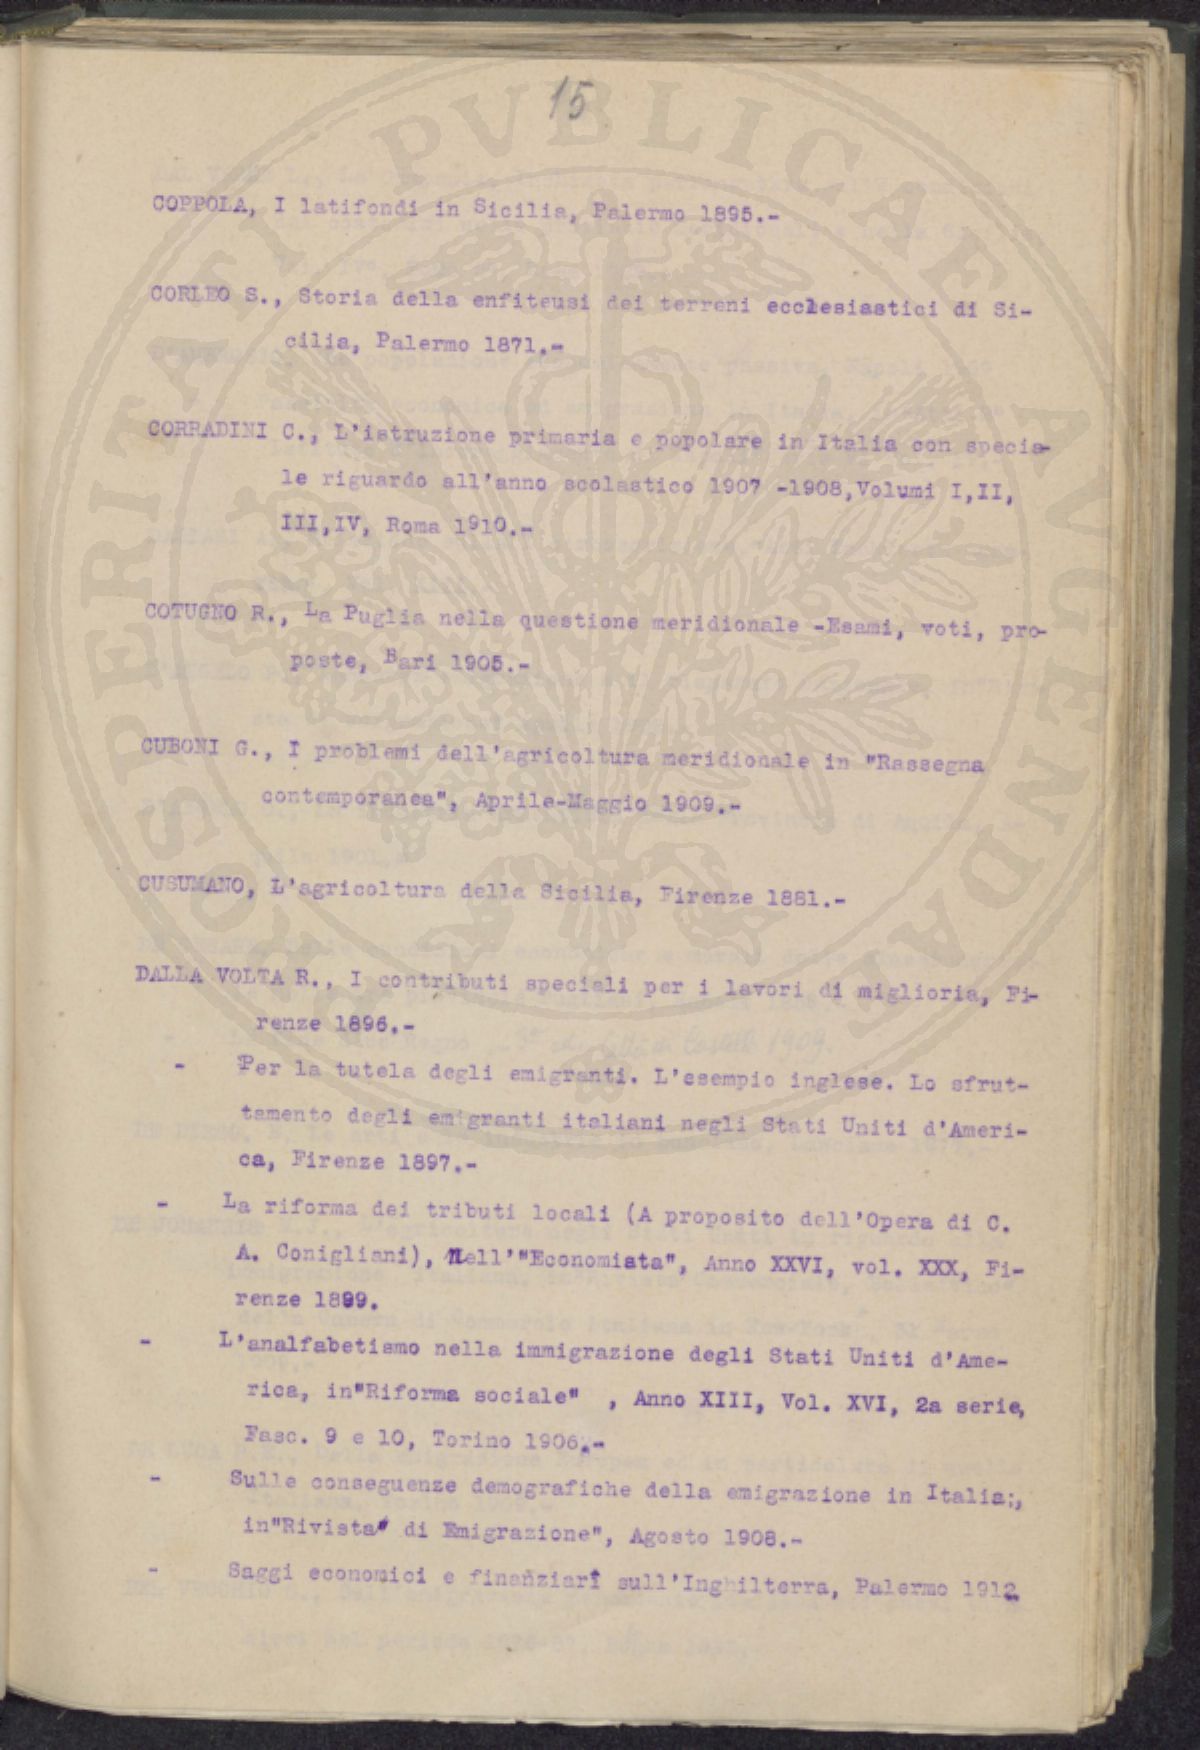 15
COPPOLA, I latifondi in Sicilia, Palermo 1895.-
CORLEO S., Storia della enfiteusi dei terreni ecclesiastici di Si-
cilia, Palermo 1871.-
CORRADINI C., L'istruzione primaria e popolare in Italia con specia-
le riguardo all'anno scolastico 1907 -1908,Volumi I,II,
III,IV, Roma 1910.-
COTUGNO R., La Puglia nella questione meridionale -Esami, voti, pro-
poste, Bari 1905.-
CUBONI G., I problemi dell'agricoltura meridionale in "Rassegna
contemporanea", Aprile-Maggio 1909.-
CUSUMANO, L'agricoltura della Sicilia, Firenze 1881.-
DALLA VOLTA R., I contributi speciali per i lavori di miglioria, Fi-
renze 1896.-
- Per la tutela degli emigranti. L'esempio inglese. Lo sfrut-
tamento degli emigranti italiani negli Stati Uniti d'Ameri-
ca, Firenze 1897.-
- La riforma dei tributi locali (A proposito dell'Opera di C.
A. Conigliani), nell'"Economista", Anno XXVI, vol. XXX, Fi-
renze 1899.
- L'analfabetismo nella immigrazione degli Stati Uniti d'Ame-
rica, in"Riforma sociale" , Anno XIII, Vol. XVI, 2a serie,
Fasc. 9 e 10, Torino 1906.-
- Sulle conseguenze demografiche della emigrazione in Italia:,
in"Rivista" di Emigrazione", Agosto 1908.-
- Saggi economici e finanziari sull'Inghilterra, Palermo 1912.
PROSPERITATI PVBLICAE AVGENDAE